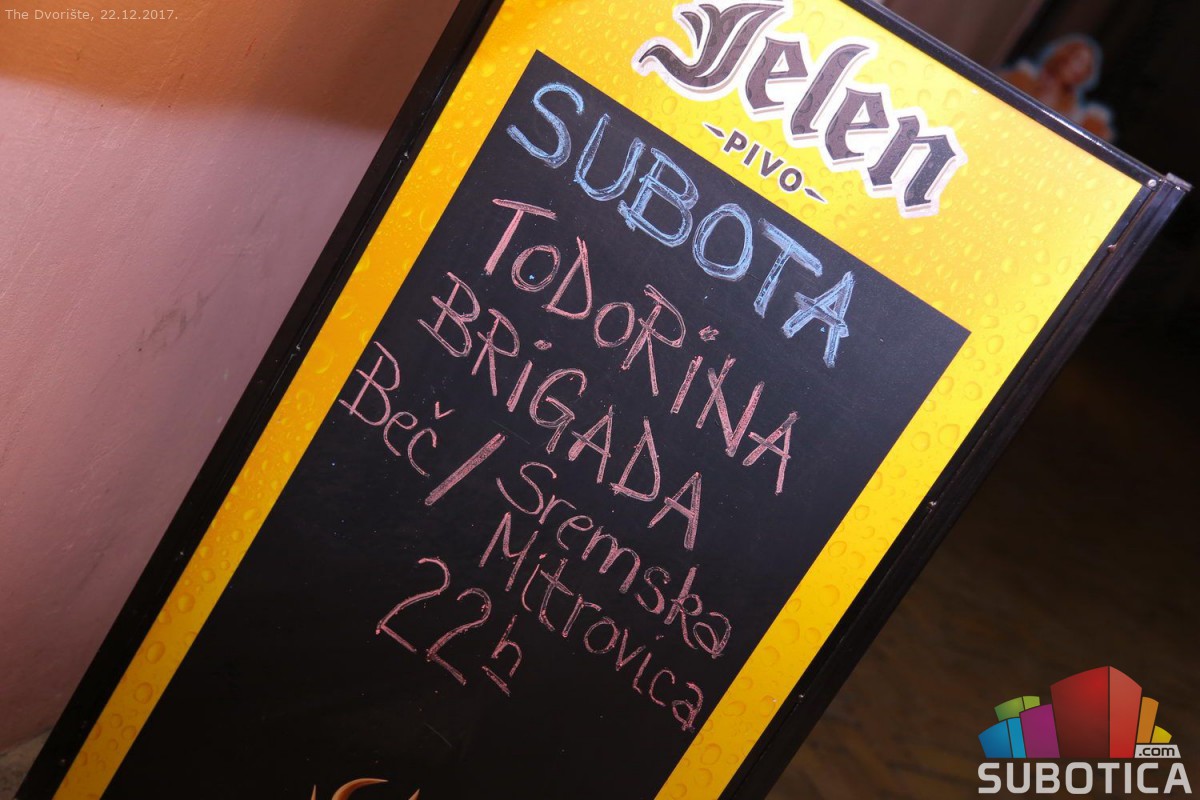 The Dvorište, 22.12.2017.
Jelen
PIVO
SUBOTA
TODORiNA
BRiGADA
Beč / Sremska
Mitrovica
22h
.com
SUBOTICA